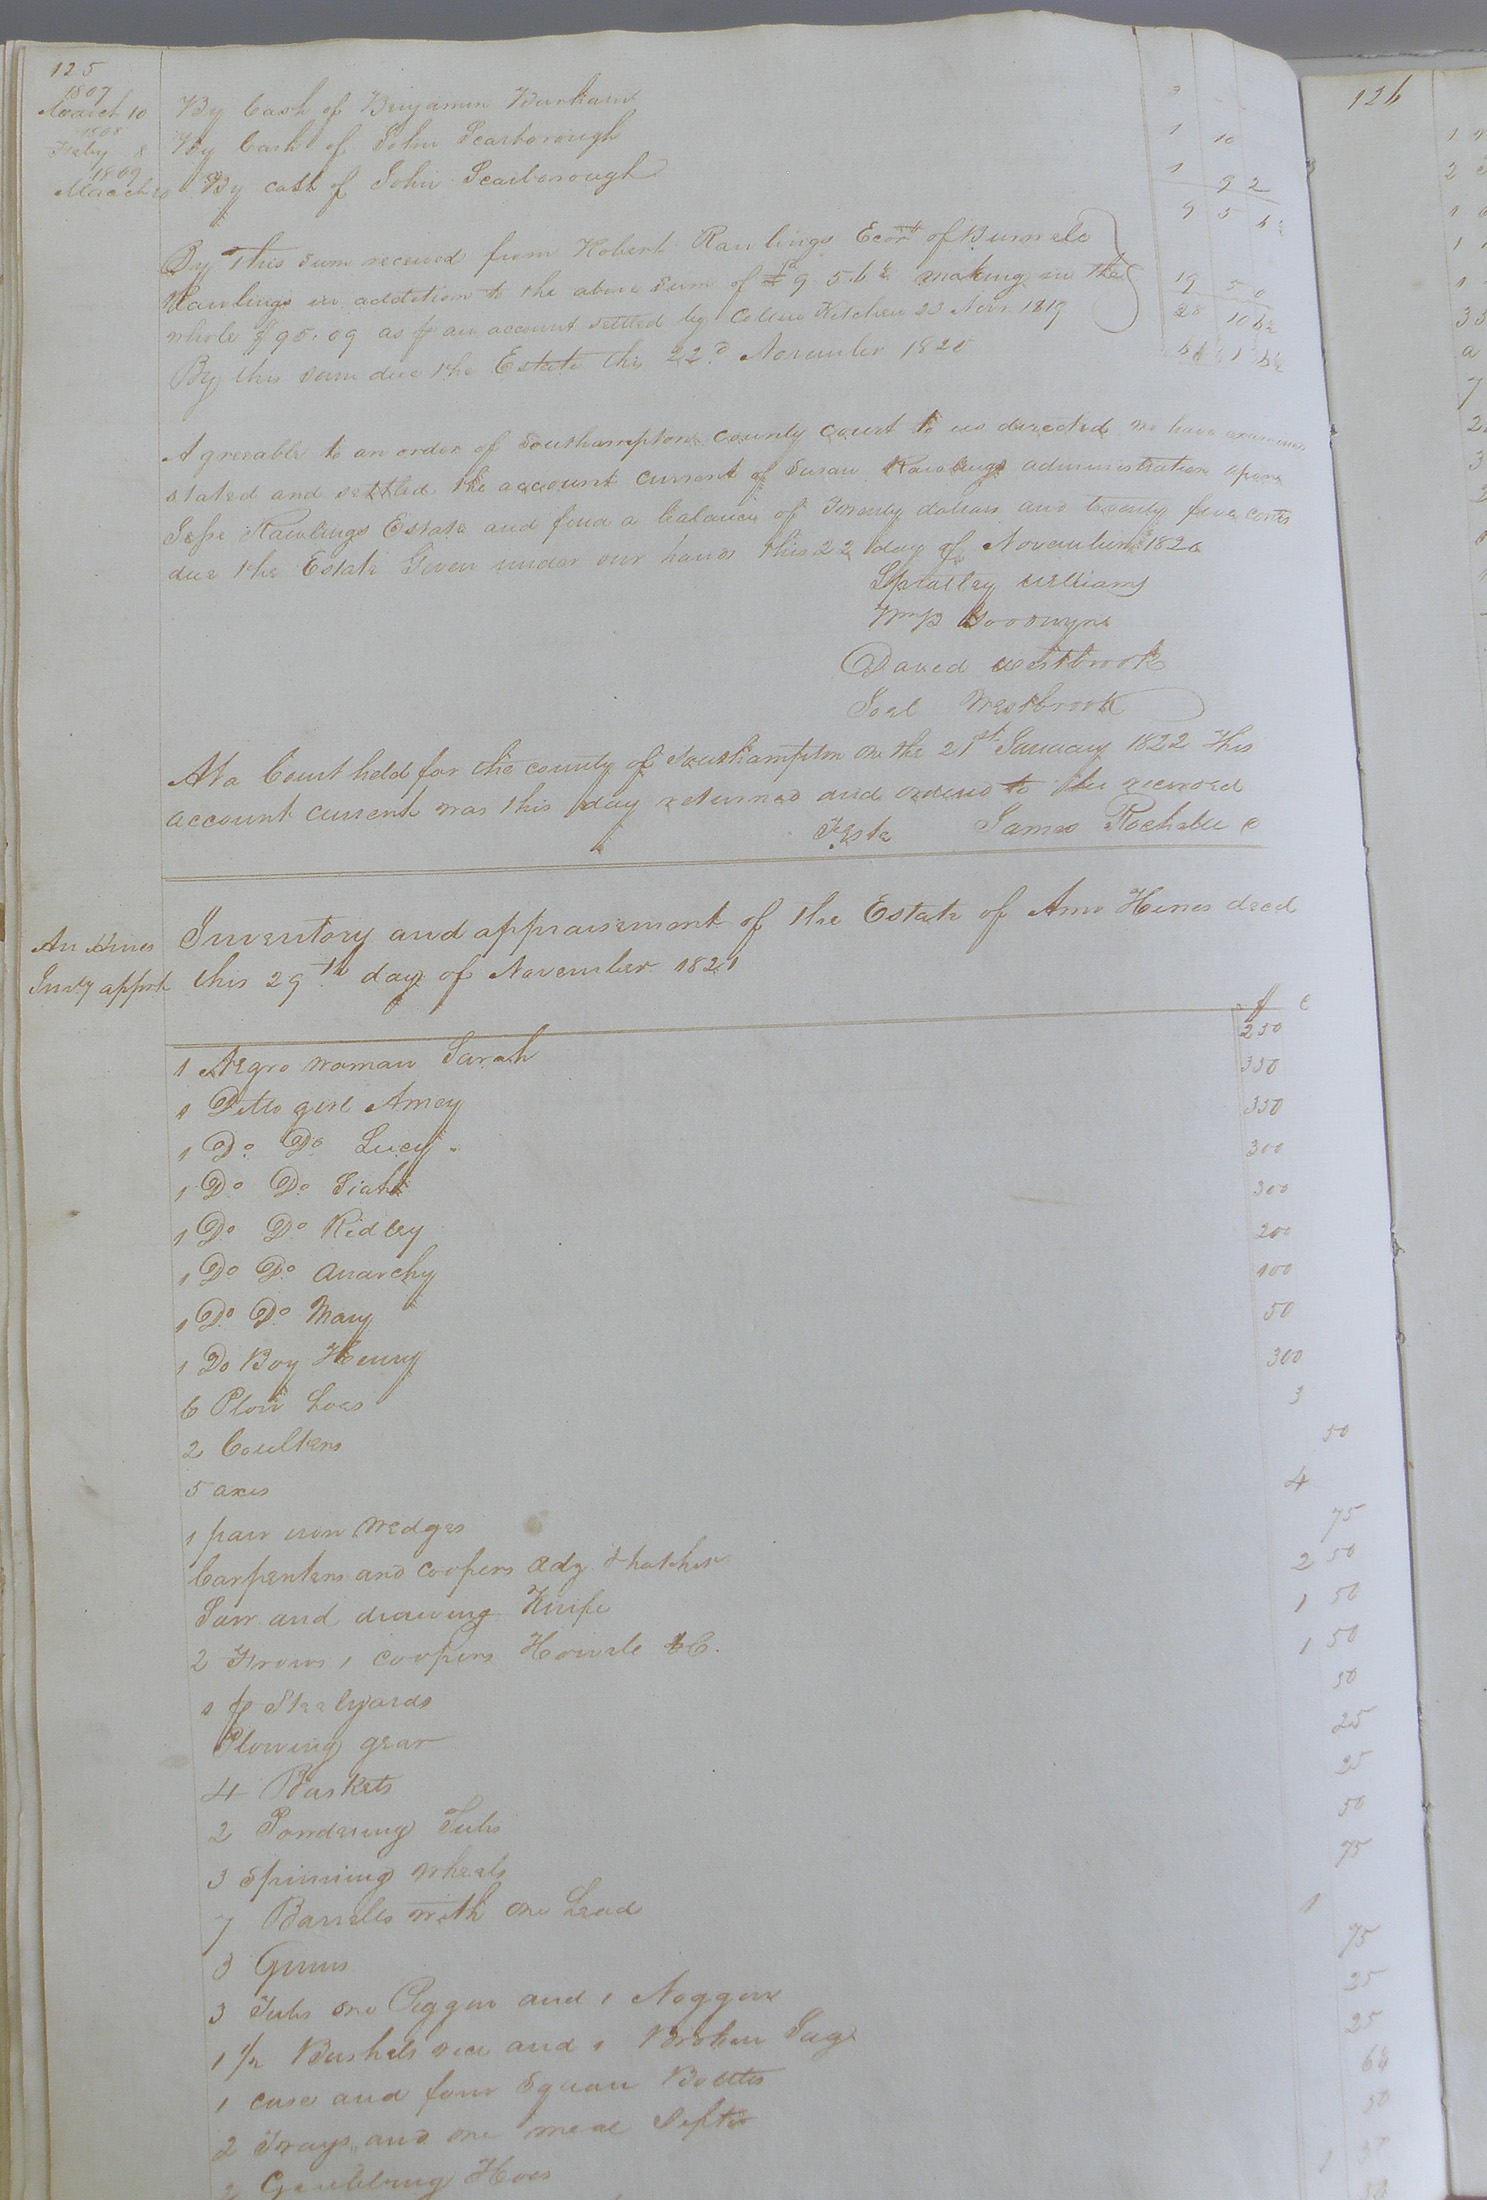 125
1807
March 10 By Cash of Benjamin Barham 3
1808
Feby 8 By Cash of John Scarborough 1 10
1809
March By cash of John Scarborough 1 9 2
9 5 6½
By this sum received from Robert Rawlings Ecor of Burwele
Rawlings in addition to the above sum of 9 5.6½ making in the 19 5 0
whole $95.09 as p an account settled by Collin Kitchen 23 Novr 1819 28 10 6½
By this sum due the Estate this 22d November 1820
Agreeable to an order of Southampton county court to us directed we have examined
stated and settled the account current of Susan Rawlings administration upon
Jesse Rawlings Estate and find a balance of Twenty dollars and twenty five cents
due the Estate Given under our hands this 22 day of November 1820
Spratley Williams
Wm B Goodwyne
David Westbrook
Joel Westbrook
At a Court held for the county of Southampton on the 21st January 1822 This
account current was this day returned and ordered to be recorded
Teste James Rochelle C
An Hines Inventory and appraisement of the Estate of Ann Hines decd
Invty appmt this 29th day of November 1821
$ C
1 Negro woman Sarah 250
1 Ditto girl Amey 350
1 Do Do Lucy 350
1 Do Do 300
1 Do Do Ridley 300
1 Do Do Anarchy 200
1 Do Do Mary 100
50
1 Do Boy Henry 300
6 Plow hoes 3
2 Coulters 50
5 axes 4
1 pair iron wedges 75
Carpenters and coopers adz & hatchet 2 50
Saw and drawing Knife 1 50
2 Frows 1 coopers Howele &C. 1 50
1 p Steelyards 50
Plowing gear 25
4 Baskets 25
2 Powdering Tubs 50
3 Spinning wheels 75
7 Barrells with one head 1
3 Gums 75
3 Tubs one Piggin and 1 Noggin 25
1 1/2 Bushels rice and 1 Broken Jug 25
1 case and four Square Bottles
2 Trays and one meal Sifter 50
2 Grubbing Hoes 1
126